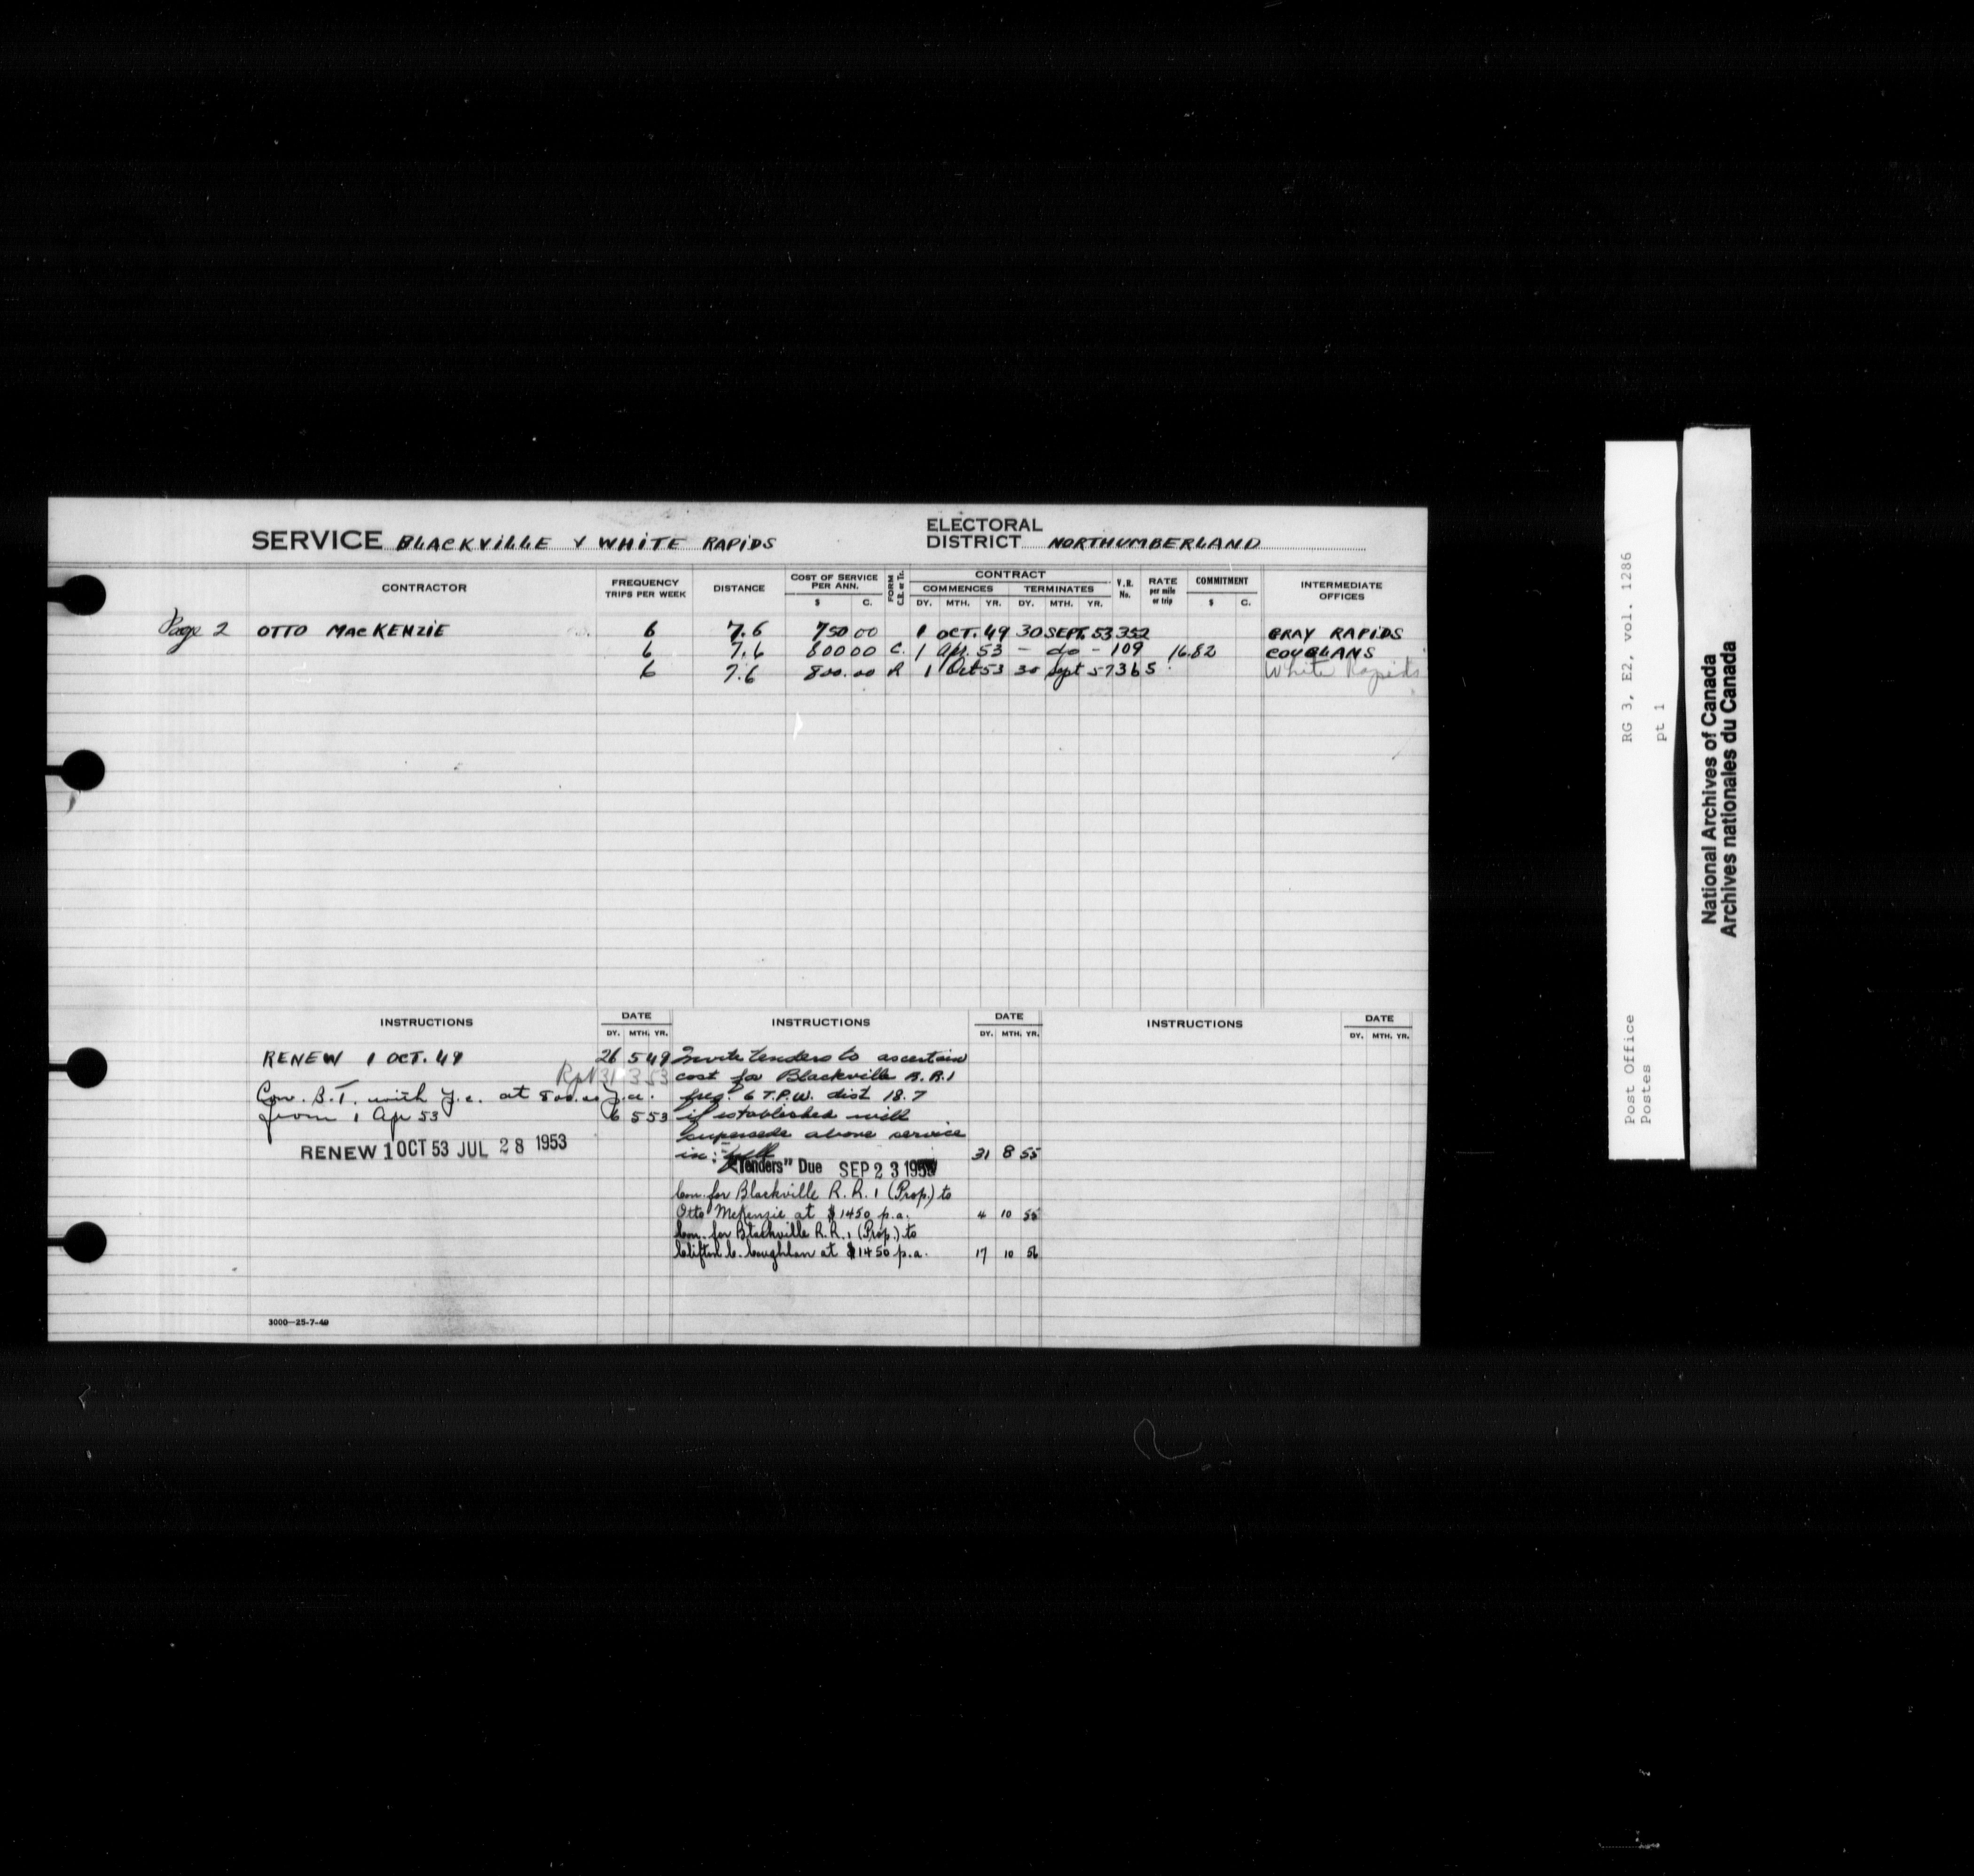 SERVICE BLACKVILLE Y WHITE RAPIDS
ELECTORAL DISTRICT NORTHUMBERLAND
CONTRACTOR FREQUENCY TRIPS PER WEEK DISTANCE COST OF SERVICE PER ANN. $ C. FORM C.R. or Tr. CONTRACT COMMENCES DY. MTH. YR. TERMINATES DY. MTH. YR. V.R. No. RATE per mile or trip COMMITMENT $ C. INTERMEDIATE OFFICES
Page 2 OTTO MacKENZIE 6 7.6 750 00 1 OCT. 49 30 SEPT. 53 352 GRAY RAPIDS
6 7.6 800 00 C. 1 Apr. 53 - do - 109 16.82 COUGLANS
6 7.6 800.00 R 1 Oct 53 30 Sept 57 365 White Rapids
INSTRUCTIONS DATE DY. MTH. YR.
RENEW 1 OCT. 49 26 5 49
31 3 53
Con. B.T. with at 800.00 p.a.
from 1 Apr 53 6 5 53
RENEW 1 OCT 53 JUL 28 1953
3000-25-7-49
INSTRUCTIONS DATE DY. MTH. YR.
Invite tenders to ascertain
cost for Blackville R.R.1
freq. 6 T.P.W. dist 18.7
if established will
supersede above service
in: 31 8 55
"Tenders" Due SEP 23 1955
Con. for Blackville R.R. 1 (Prop.) to
Otto McKenzie at $1450 p.a. 4 10 55
Con. for Blackville R.R. 1 (Prop.) to
Clifton C. Coughlan at $1450 p.a. 17 10 56
INSTRUCTIONS DATE DY. MTH. YR.
Post Office RG 3, E2, vol. 1286
Postes pt 1
National Archives of Canada
Archives nationales du Canada